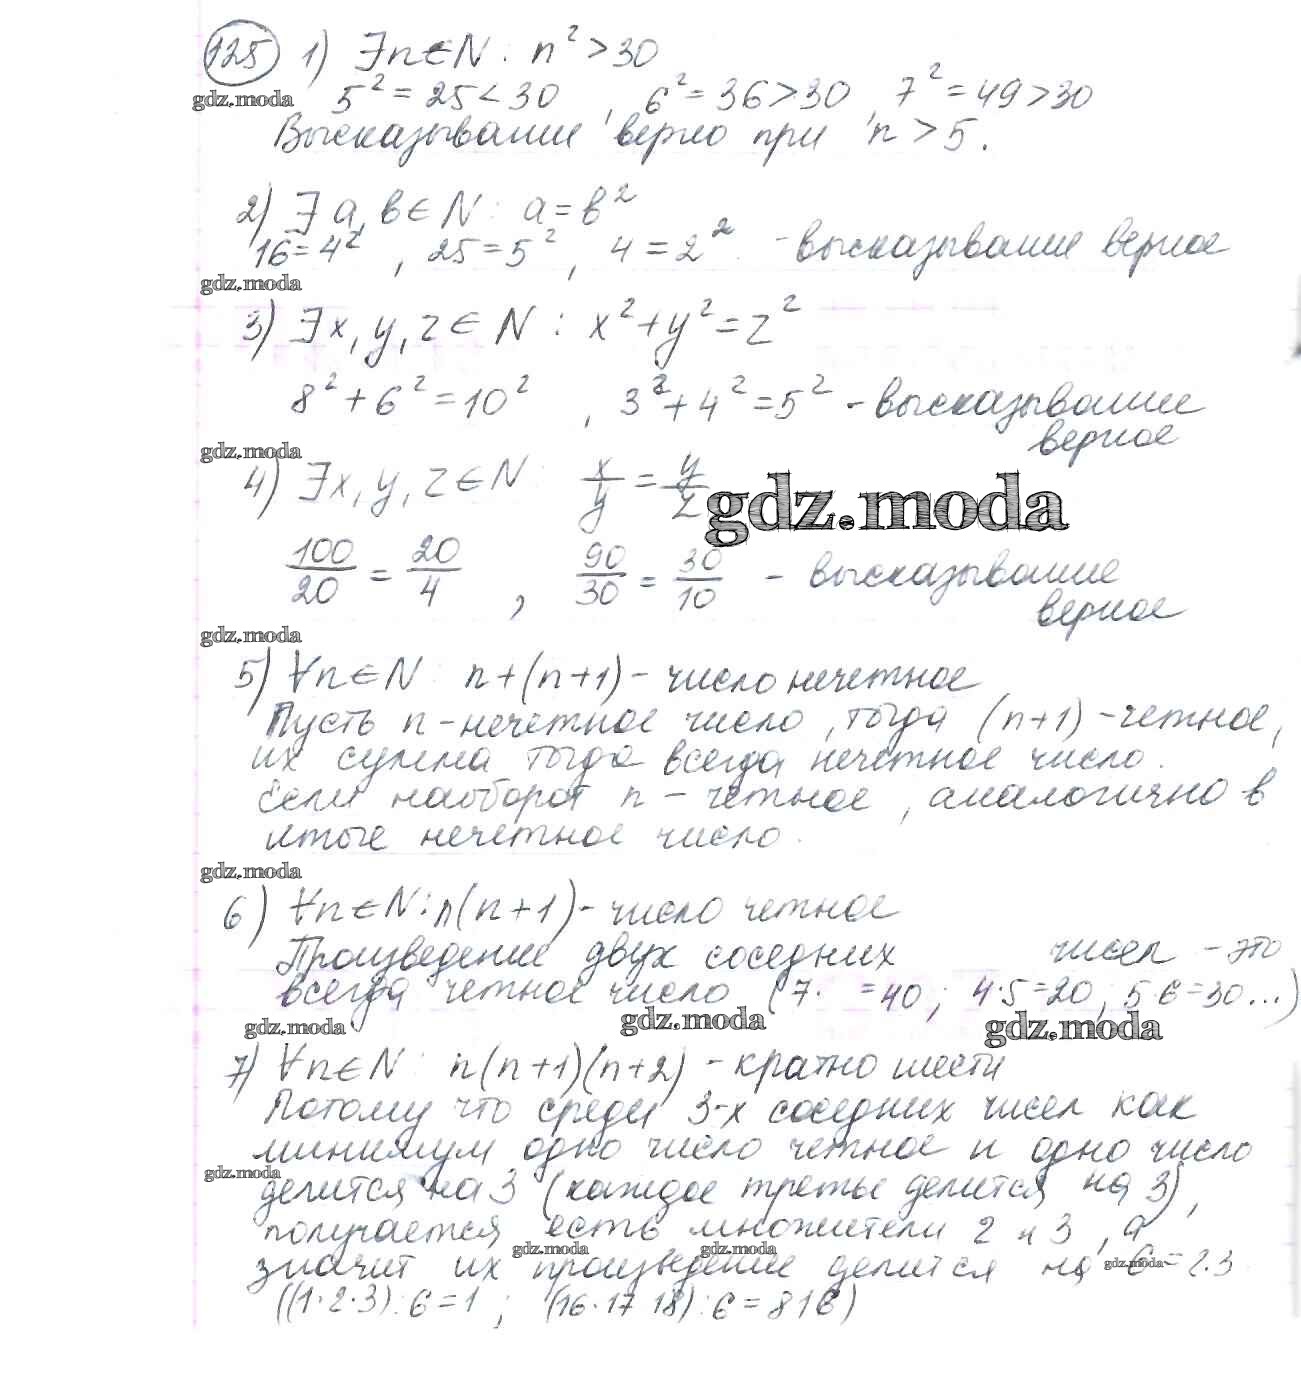 125 1) ∃n∈N: n² > 30
gdz.moda
5² = 25 < 30, 6² = 36 > 30, 7² = 49 > 30
Высказывание верно при n > 5.
2) ∃ a, b ∈ N: a = b²
16 = 4², 25 = 5², 4 = 2² - высказывание верное
gdz.moda
3) ∃x, y, z ∈ N: x² + y² = z²
8² + 6² = 10², 3² + 4² = 5² - высказывание
верное
gdz.moda
4) ∃x, y, z ∈ N x/y = y/z
gdz.moda
100/20 = 20/4, 90/30 = 30/10 - высказывание
верное
gdz.moda
5) ∀n∈N n+(n+1) - число нечетное
Пусть n - нечетное число, тогда (n+1) - четное,
их сумма тогда всегда нечетное число.
Если наоборот n - четное, аналогично в
итоге нечетное число.
gdz.moda
6) ∀n∈N: n(n+1) - число четное
Произведение двух соседних чисел - это
всегда четное число (7· = 40; 4·5=20, 5·6=30...)
gdz.moda gdz.moda gdz.moda
7) ∀n∈N: n(n+1)(n+2) - кратно шести
Потому что среди 3-х соседних чисел как
минимум одно число четное и одно число
gdz.moda
делится на 3 (каждое третье делится на 3),
получается есть множители 2 и 3, а
gdz.moda gdz.moda
значит их произведение делится на 6 = 2·3
gdz.moda
((1·2·3):6=1; (16·17·18):6=816)